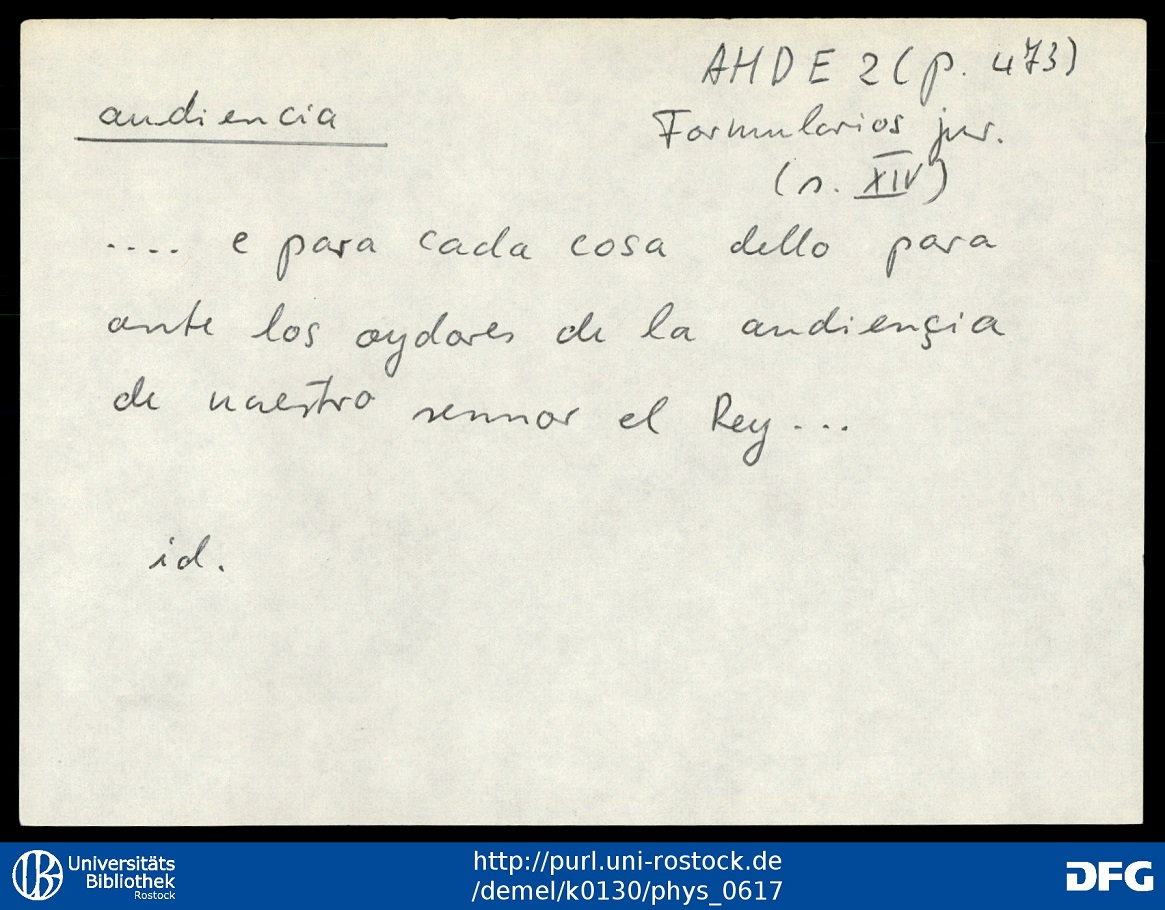 AHDE 2 (p. 473)
audiencia
Formularios jur.
(s. XIV)
.... e para cada cosa dello para
ante los oydores de la audiençia
de nuestro sennor el Rey ...
id.
Universitäts
Bibliothek
Rostock
http://purl.uni-rostock.de
/demel/k0130/phys_0617
DFG